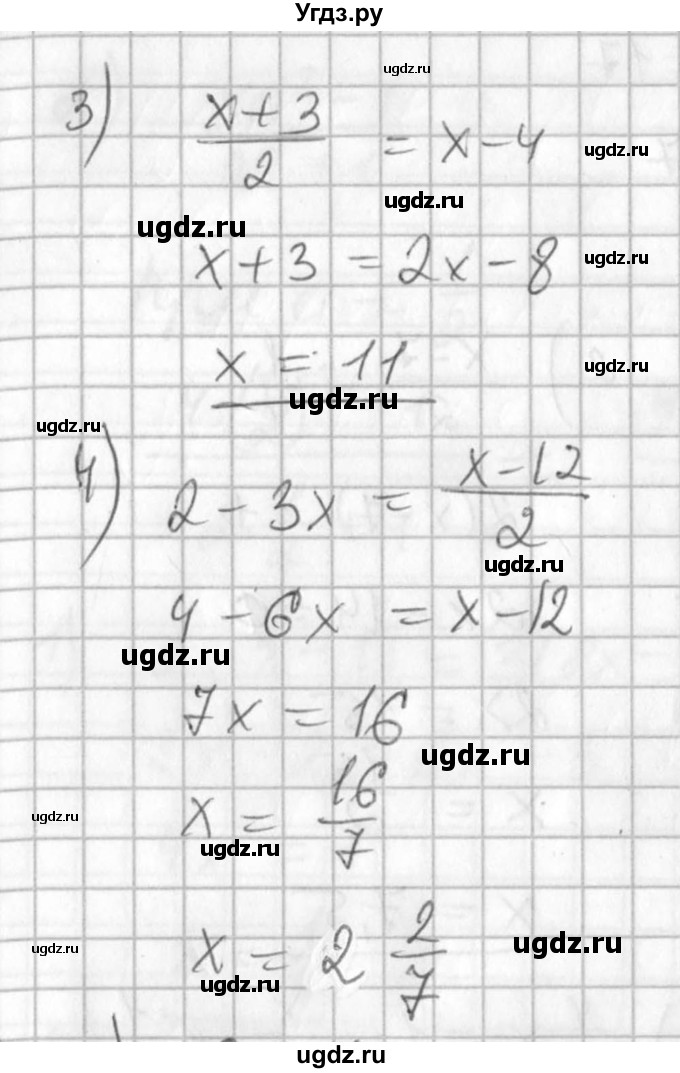 Угдз.ру
ugdz.ru
3) (x+3)/2 = x-4
ugdz.ru
ugdz.ru
ugdz.ru
x+3 = 2x-8
ugdz.ru
x = 11
ugdz.ru
ugdz.ru
ugdz.ru
4) 2-3x = (x-12)/2
ugdz.ru
4-6x = x-12
ugdz.ru
7x = 16
ugdz.ru
x = 16/7
ugdz.ru
ugdz.ru
x = 2 2/7
ugdz.ru
ugdz.ru
ugdz.ru
ugdz.ru